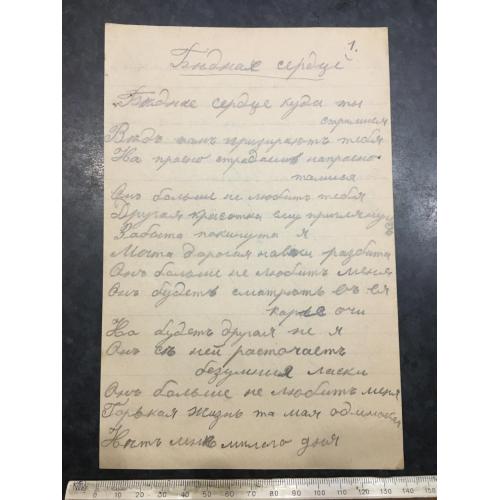 1.
Бѣдная сердце
Бѣдное сердце куда ты
стремися
Вѣдь тамъ призираютъ тебя
На прасно страдаешъ напрасно
томися
Онъ больше не любитъ тебя
Другая красотка ему приглянулась
Забыта покинута я
Мечта дорогая навеки разбита
Онъ больше не любитъ меня
Онъ будетъ смотрѣть въ ея
карые очи
На будетъ другая не я
Онъ съ ней расточаетъ
безумния ласки
Онъ больше не любитъ меня
Горькая жизнь та мая одинокая
Нѣтъ мнѣ милого дня
0 10 20 30 40 50 60 70 80 90 100 110 120 130 140 150